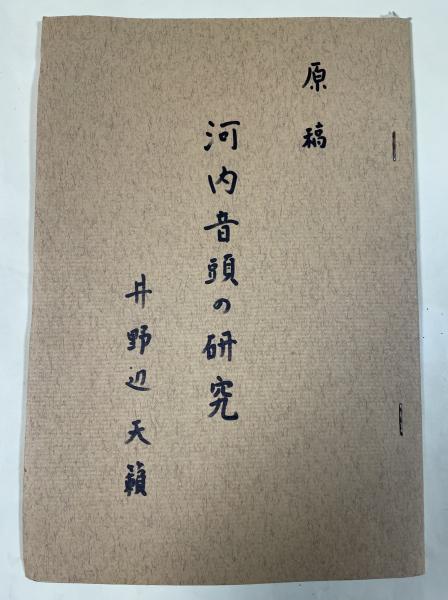 原稿
河内音頭の研究
井野辺天籟